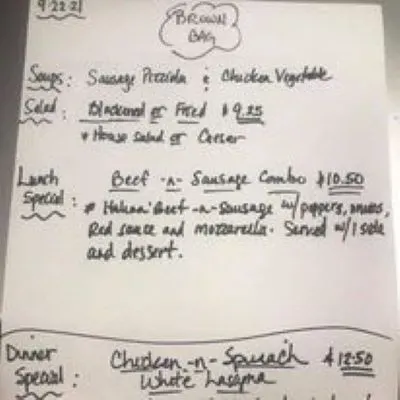 9-22-21
BROWN
BAG
Soups: Sausage Pizziola & Chicken Vegetable
Salad: Blackened or Fried $9.25
* House Salad or Caesar
Lunch Special: Beef -n- Sausage Combo $10.50
* Italian Beef -n- Sausage w/ peppers, onions,
Red sauce and mozzarella. Served w/ 1 side
and dessert.
Dinner Special: Chicken -n- Spinach $12.50
White Lasagna